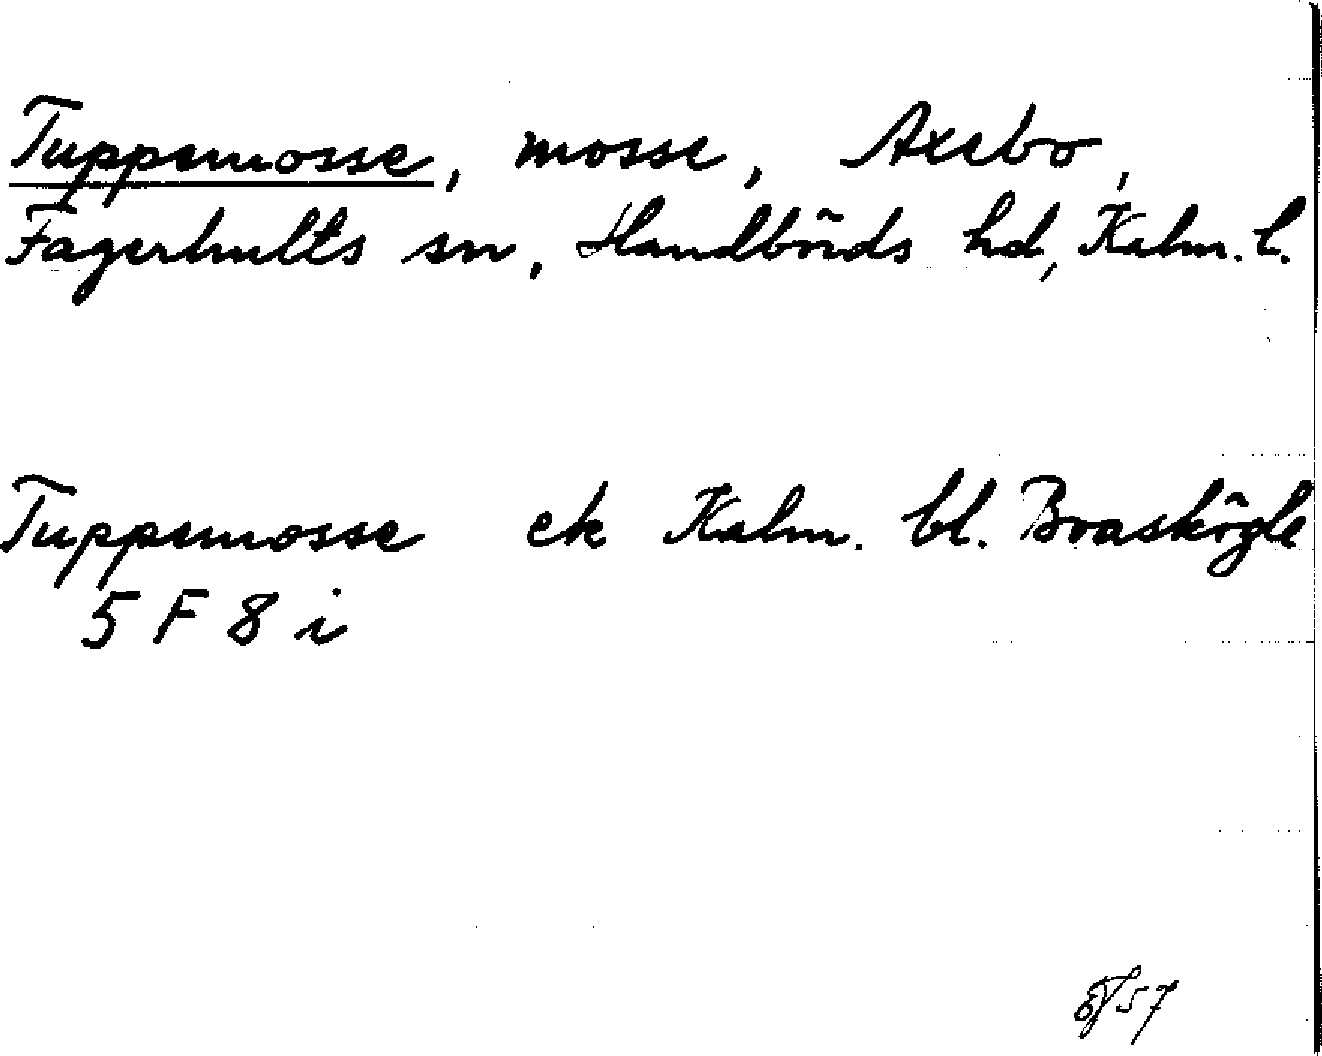 Tuppemosse, mosse, Axebo,
Fagerhults sn, Handbörds hd, Kalm. l.
Tuppemosse ek Kalm. bl. Boaskögle
5 F 8 i
57